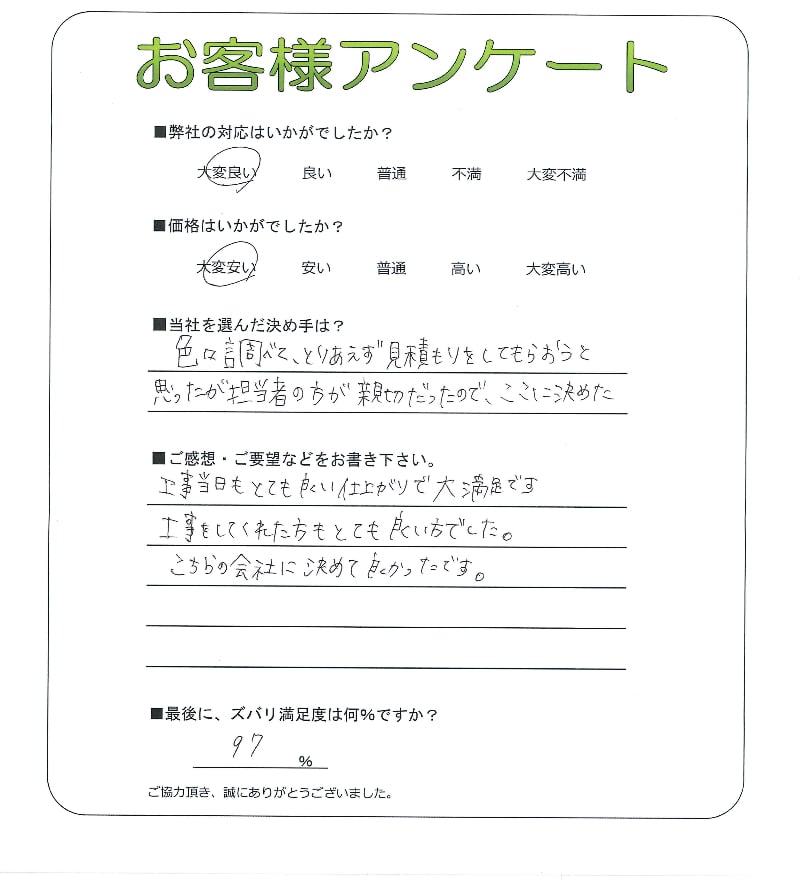 お客様アンケート
■弊社の対応はいかがでしたか？
大変良い 良い 普通 不満 大変不満
■価格はいかがでしたか？
大変安い 安い 普通 高い 大変高い
■当社を選んだ決め手は？
色々調べて、とりあえず見積もりをしてもらおうと
思ったが担当者の方が親切だったので、ここに決めた
■ご感想・ご要望などをお書き下さい。
工事当日もとても良い仕上がりで大満足です
工事をしてくれた方もとても良い方でした。
こちらの会社に決めて良かったです。
■最後に、ズバリ満足度は何%ですか？
97 %
ご協力頂き、誠にありがとうございました。